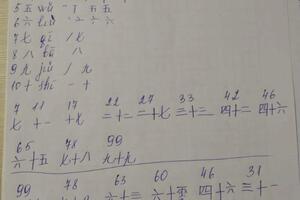 5 五 wǔ 五 五
6 六 liù 六
7 七 qī / 七
8 八 bā / 八
9 九 jiǔ / 九
10 十 shí 一 十
7 11 17 22 27 33 42 46
七 十一 十七 二十二 二十七 三十三 四十二 四十六
65 78 99
六十五 七十八 九十九
99 78 63 60 46 31
六十三 四十六 三十一